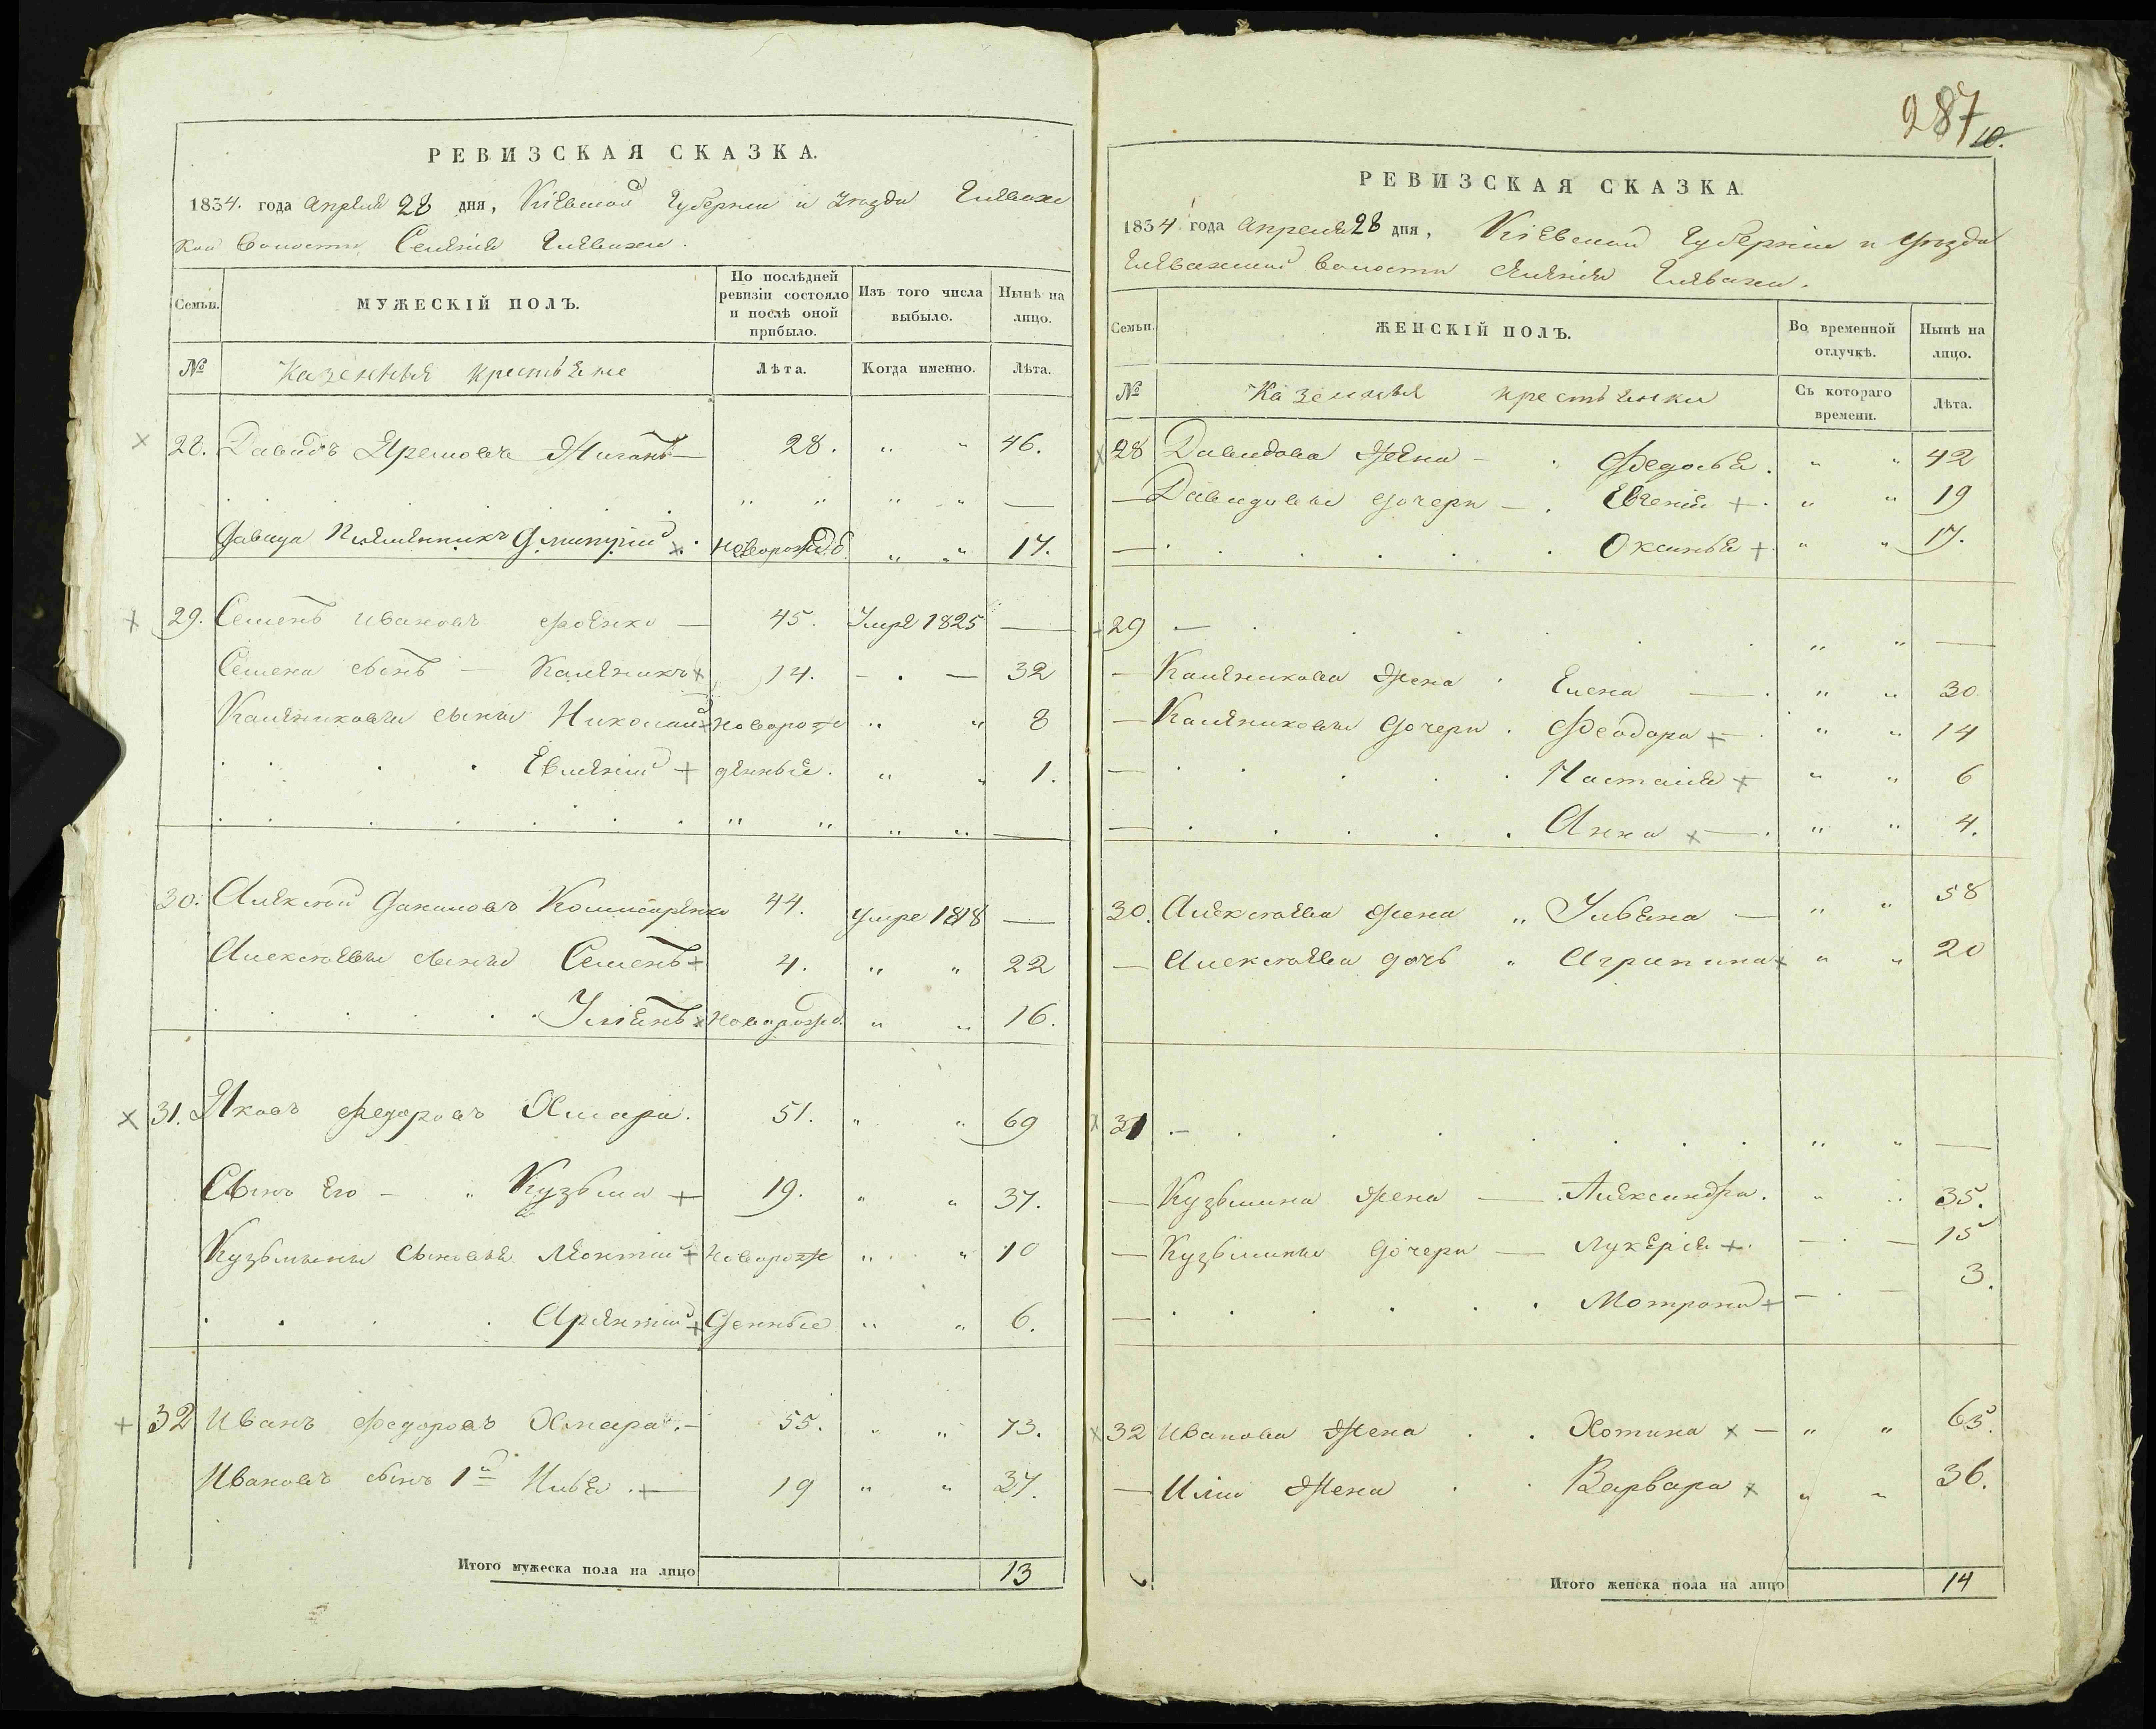 РЕВИЗСКАЯ СКАЗКА.
1834. года Апреля 28 дня, Кіевской Губерніи и Уезда Глеваха
кой Волости Селенія Глевахи.
Семьи. МУЖЕСКІЙ ПОЛЪ. По послѣдней ревизіи состояло и послѣ оной прибыло. Изъ того числа выбыло. Нынѣ на лицо.
№ Казенныя крестьяне Лѣта. Когда именно. Лѣта.
28. Давидъ Яремовъ 28. " " 46.
" " " " —
Давида Племянникъ Дмитрій Новорожд. " " 17.
29. Семенъ Ивановъ 45. Умре 1825 —
Семена сынъ — Каленикъ 14. — . — 32
Калениковы сыны Николай Новорож " " 8
Евмений денные. " " 1.
" " " " —
30. Алексей Даниловъ 44. Умре 1818 —
Алексеевы сыны Семенъ 4. " " 22
Ульянъ Новорожд. " " 16.
31. Яковъ Федоровъ Хмара. 51. " " 69
Сынъ Его — " Кузьма 19. " " 37.
Кузьмины Сыновья Леонтий Новорож " " 10
Арсентий Денные " " 6.
32 Иванъ Федоровъ Хмара. — 55. " " 73.
Ивановъ сынъ 1й Илья. 19 " " 37.
Итого мужеска пола на лицо 13
287
10.
РЕВИЗСКАЯ СКАЗКА.
1834 года Апреля 28 дня, Кіевской Губерніи и Уезда
Глевахской Волости Селенія Глевахи.
Семьи. ЖЕНСКІЙ ПОЛЪ. Во временной отлучкѣ. Нынѣ на лицо.
№ Казенныя крестьянки Съ котораго времени. Лѣта.
28 Давидова Жена — Федосья. " " 42
— Давидовы дочери — Евгения " " 19
— Оксинья " " 17.
29 — " " —
— Каленикова Жена Елена — " " 30.
— Калениковы Дочери Феодора " " 14
— Настасия " " 6
— Анна " " 4.
30. Алексеева Жена " Ульяна — " " 58
— Алексеева дочь " Агрипина " " 20
31 — " " —
— Кузьмина Жена — Александра. " " 35.
— Кузьмины Дочери — Лукерія — . — 15
— Мотрона — . — 3.
32 Иванова Жена Хотина — " " 65.
— Илии Жена Варвара " " 36.
Итого женска пола на лицо 14